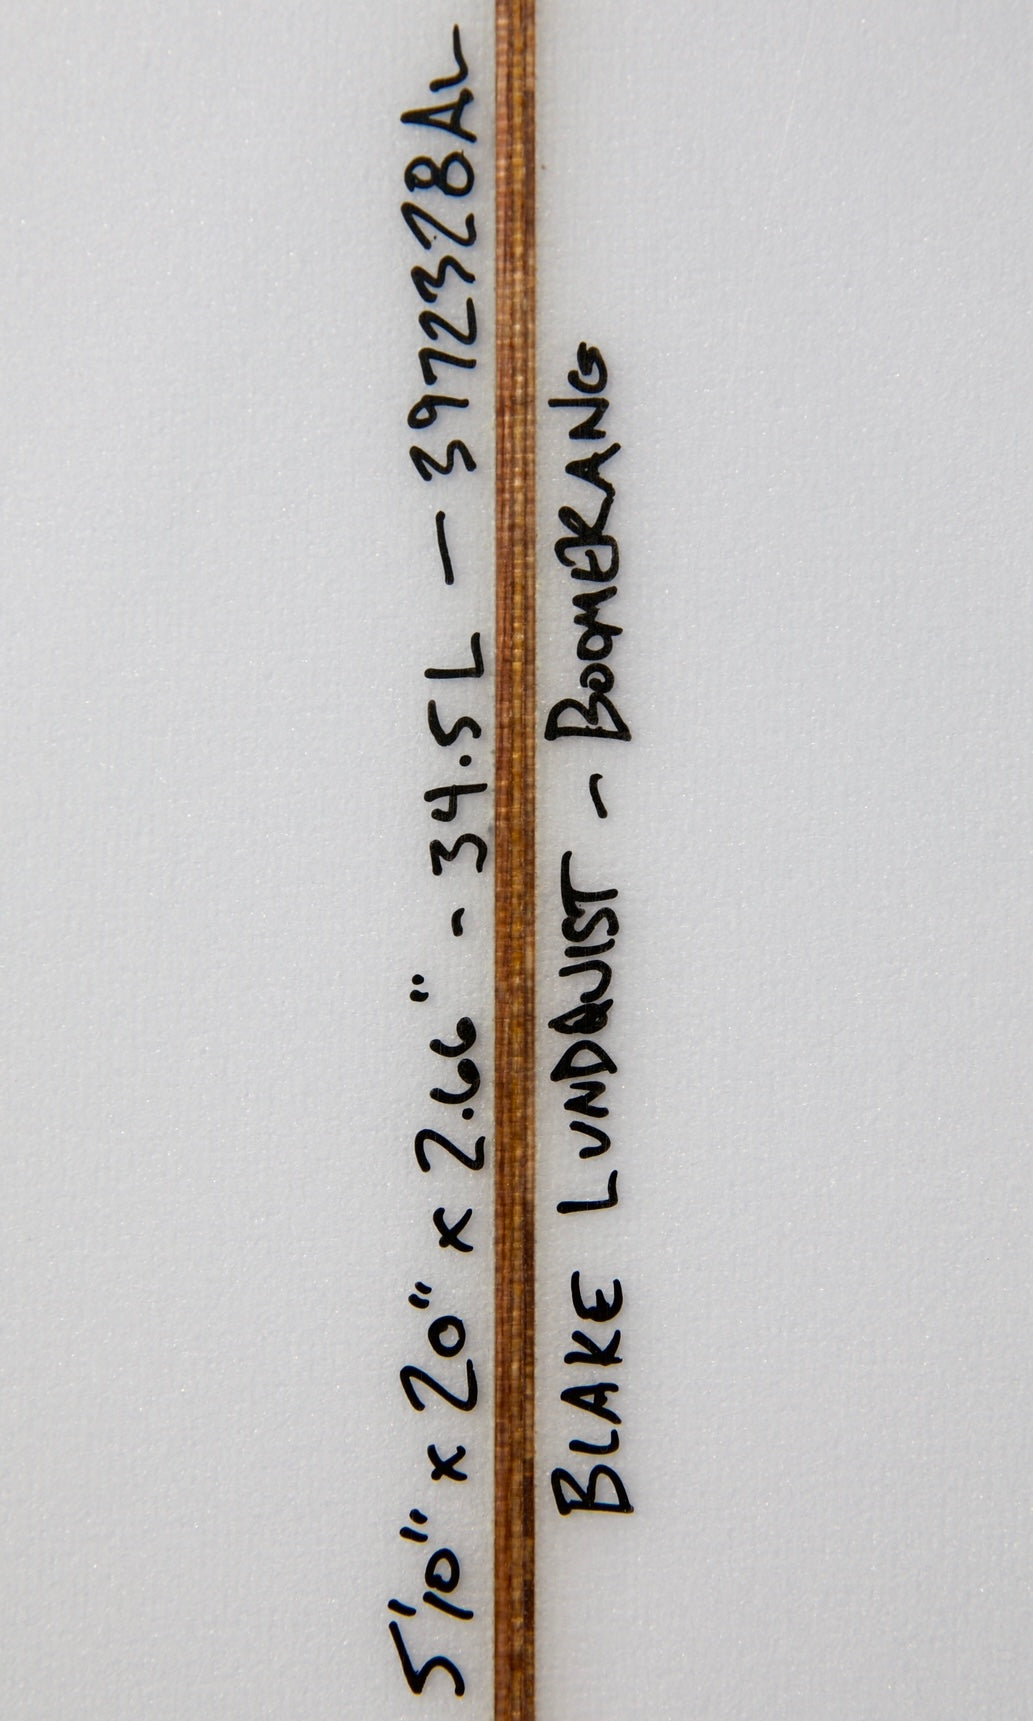 5'10" x 20" x 2.66" - 34.5 L — 3972328AL
BLAKE LUNDQUIST - BOOMERANG